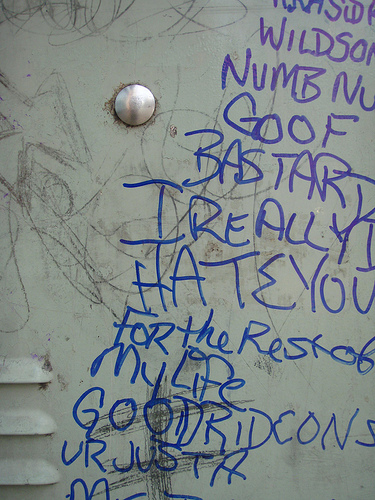 WILDSON
NUMB NU
GOOF
BASTARD
I REALLY
HATE YOU
FOR the Rest of
My LiFe
GOODRIDEONS
UR JUST A